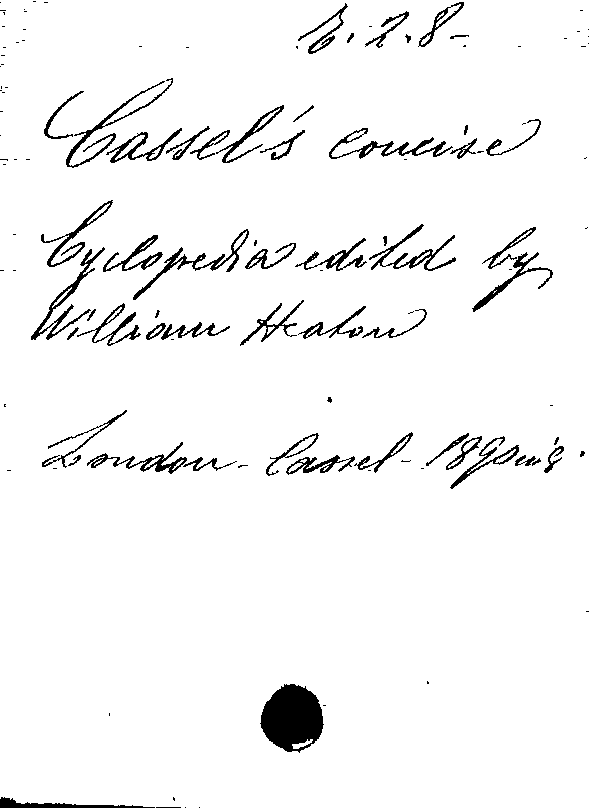 E.2.8-
Cassel's concise
Cyclopedia edited by
William Heaton
London - Cassel - 189